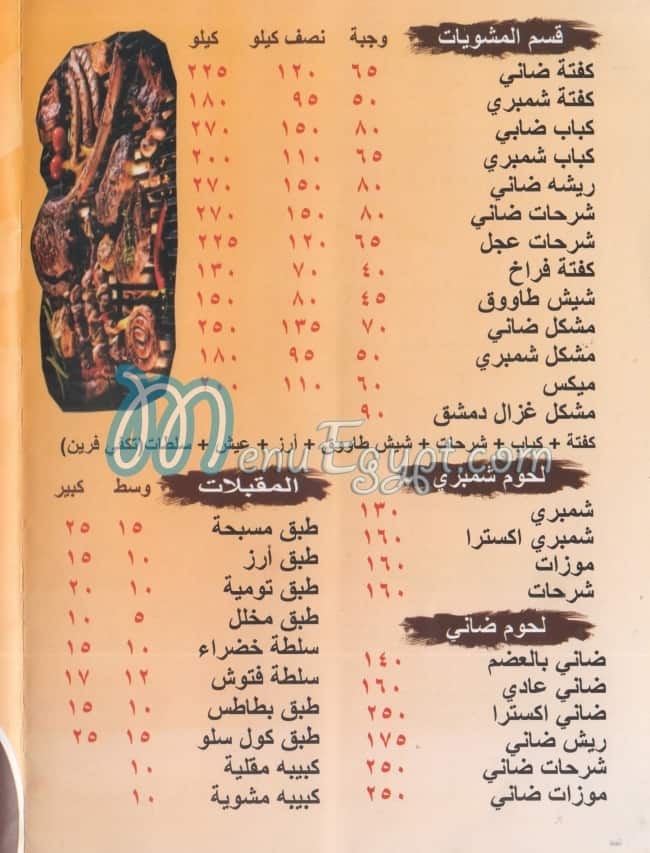 قسم المشويات وجبة نصف كيلو كيلو
كفتة ضاني ٦٥ ١٢٠ ٢٢٥
كفتة شمبري ٥٠ ٩٥ ١٨٠
كباب ضابي ٨٠ ١٥٠ ٢٧٠
كباب شمبري ٦٥ ١١٠ ٢٠٠
ريشه ضاني ٨٠ ١٥٠ ٢٧٠
شرحات ضاني ٨٠ ١٥٠ ٢٧٠
شرحات عجل ٦٥ ١٢٠ ٢٢٥
كفتة فراخ ٤٠ ٧٠ ١٣٠
شيش طاووق ٤٥ ٨٠ ١٥٠
مشكل ضاني ٧٠ ١٣٥ ٢٥٠
مشكل شمبري ٥٠ ٩٥ ١٨٠
ميكس ٦٠ ١١٠ ٢٠٠
مشكل غزال دمشق ٩٠
كفتة + كباب + شرحات + شيش طاووق + أرز + عيش + سلطات (تكفي فرين)
MenuEgypt.com
لحوم شمبري
شمبري ١٣٠
شمبري اكسترا ١٦٠
موزات ١٦٠
شرحات ١٦٠
لحوم ضاني
ضاني بالعضم ١٤٠
ضاني عادي ١٦٠
ضاني اكسترا ٢٥٠
ريش ضاني ١٧٥
شرحات ضاني ٢٥٠
موزات ضاني ٢٥٠
المقبلات وسط كبير
طبق مسبحة ١٥ ٢٥
طبق أرز ١٠ ١٥
طبق تومية ١٠ ٢٠
طبق مخلل ٥ ١٠
سلطة خضراء ١٠ ١٥
سلطة فتوش ١٢ ١٧
طبق بطاطس ١٠ ١٥
طبق كول سلو ١٥ ٢٥
كبيبه مقلية ١٠
كبيبه مشوية ١٠